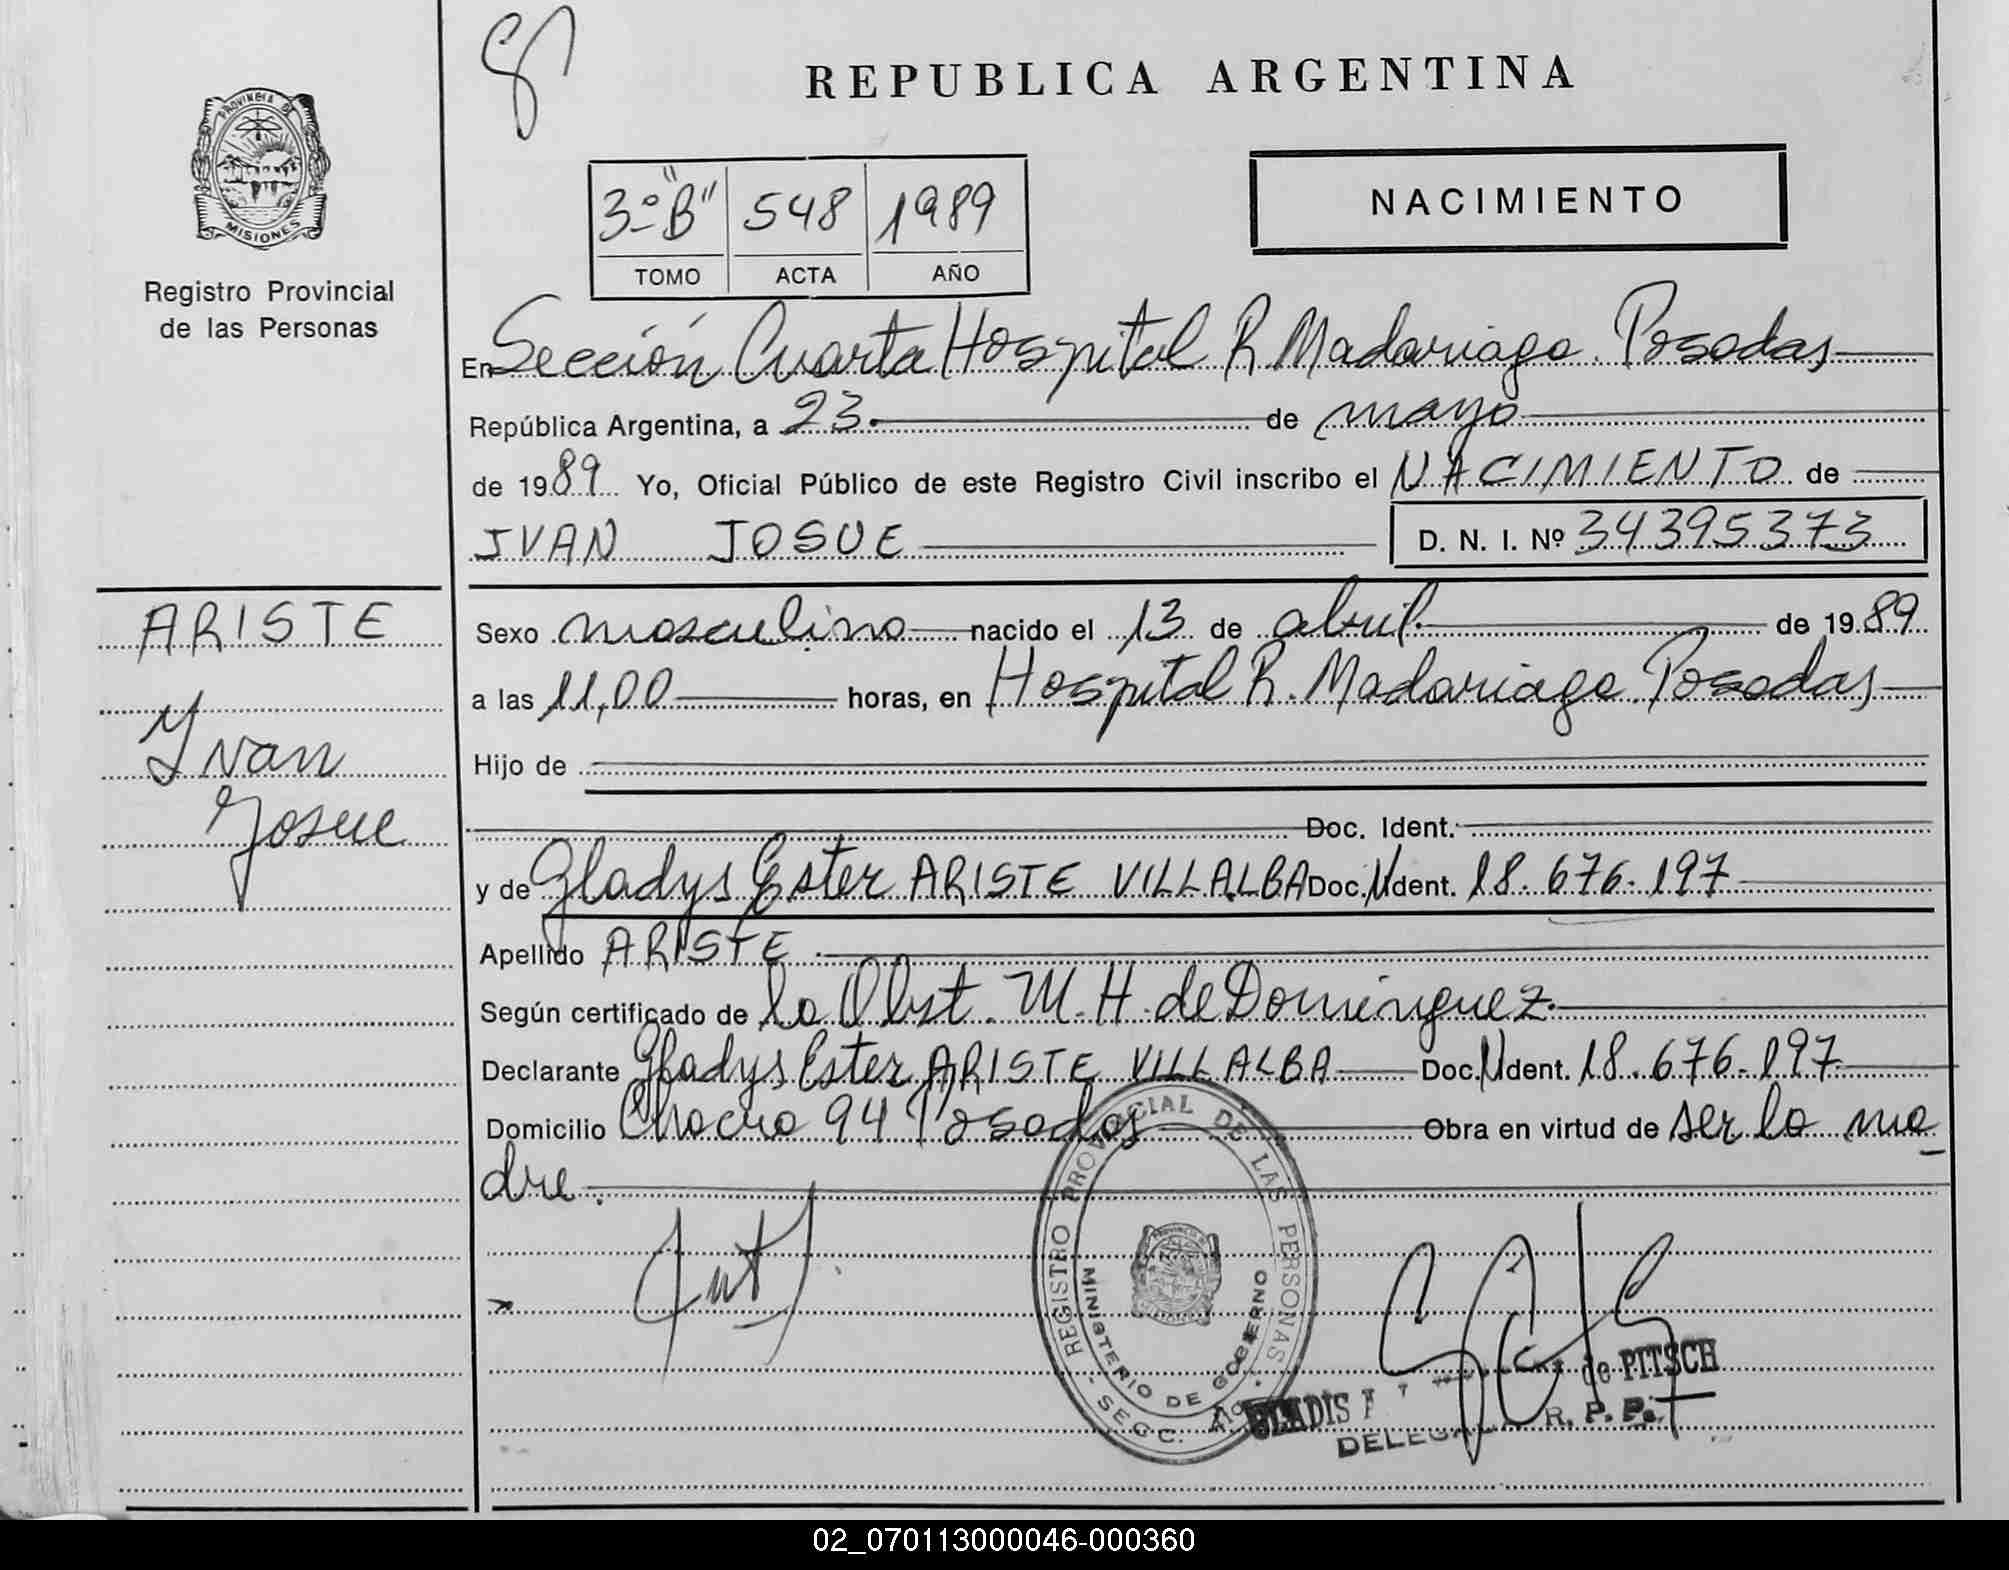 REPUBLICA ARGENTINA
PROVINCIA DE
MISIONES
Registro Provincial
de las Personas
3º "B" 548 1989
TOMO ACTA AÑO
NACIMIENTO
En Sección Cuarta Hospital R. Madariaga. Posadas
República Argentina, a 23. de mayo
de 1989 Yo, Oficial Público de este Registro Civil inscribo el NACIMIENTO de
IVAN JOSUE D. N. I. Nº 34395373
ARISTE
Yvan
Josue
Sexo masculino nacido el 13 de abril. de 1989
a las 11,00 horas, en Hospital R. Madariaga. Posadas
Hijo de
Doc. Ident.
y de Gladys Ester ARISTE VILLALBA Doc. Ident. 18.676.197
Apellido ARISTE
Según certificado de la Obst. M. H. de Domínguez.
Declarante Gladys Ester ARISTE VILLALBA Doc. Ident. 18.676.197
Domicilio Chacra 94 Posadas Obra en virtud de ser la ma
dre.
REGISTRO PROVINCIAL DE LAS PERSONAS
MINISTERIO DE GOBIERNO
SECC.
GLADIS de PITSCH
R. P. P.
02_070113000046-000360